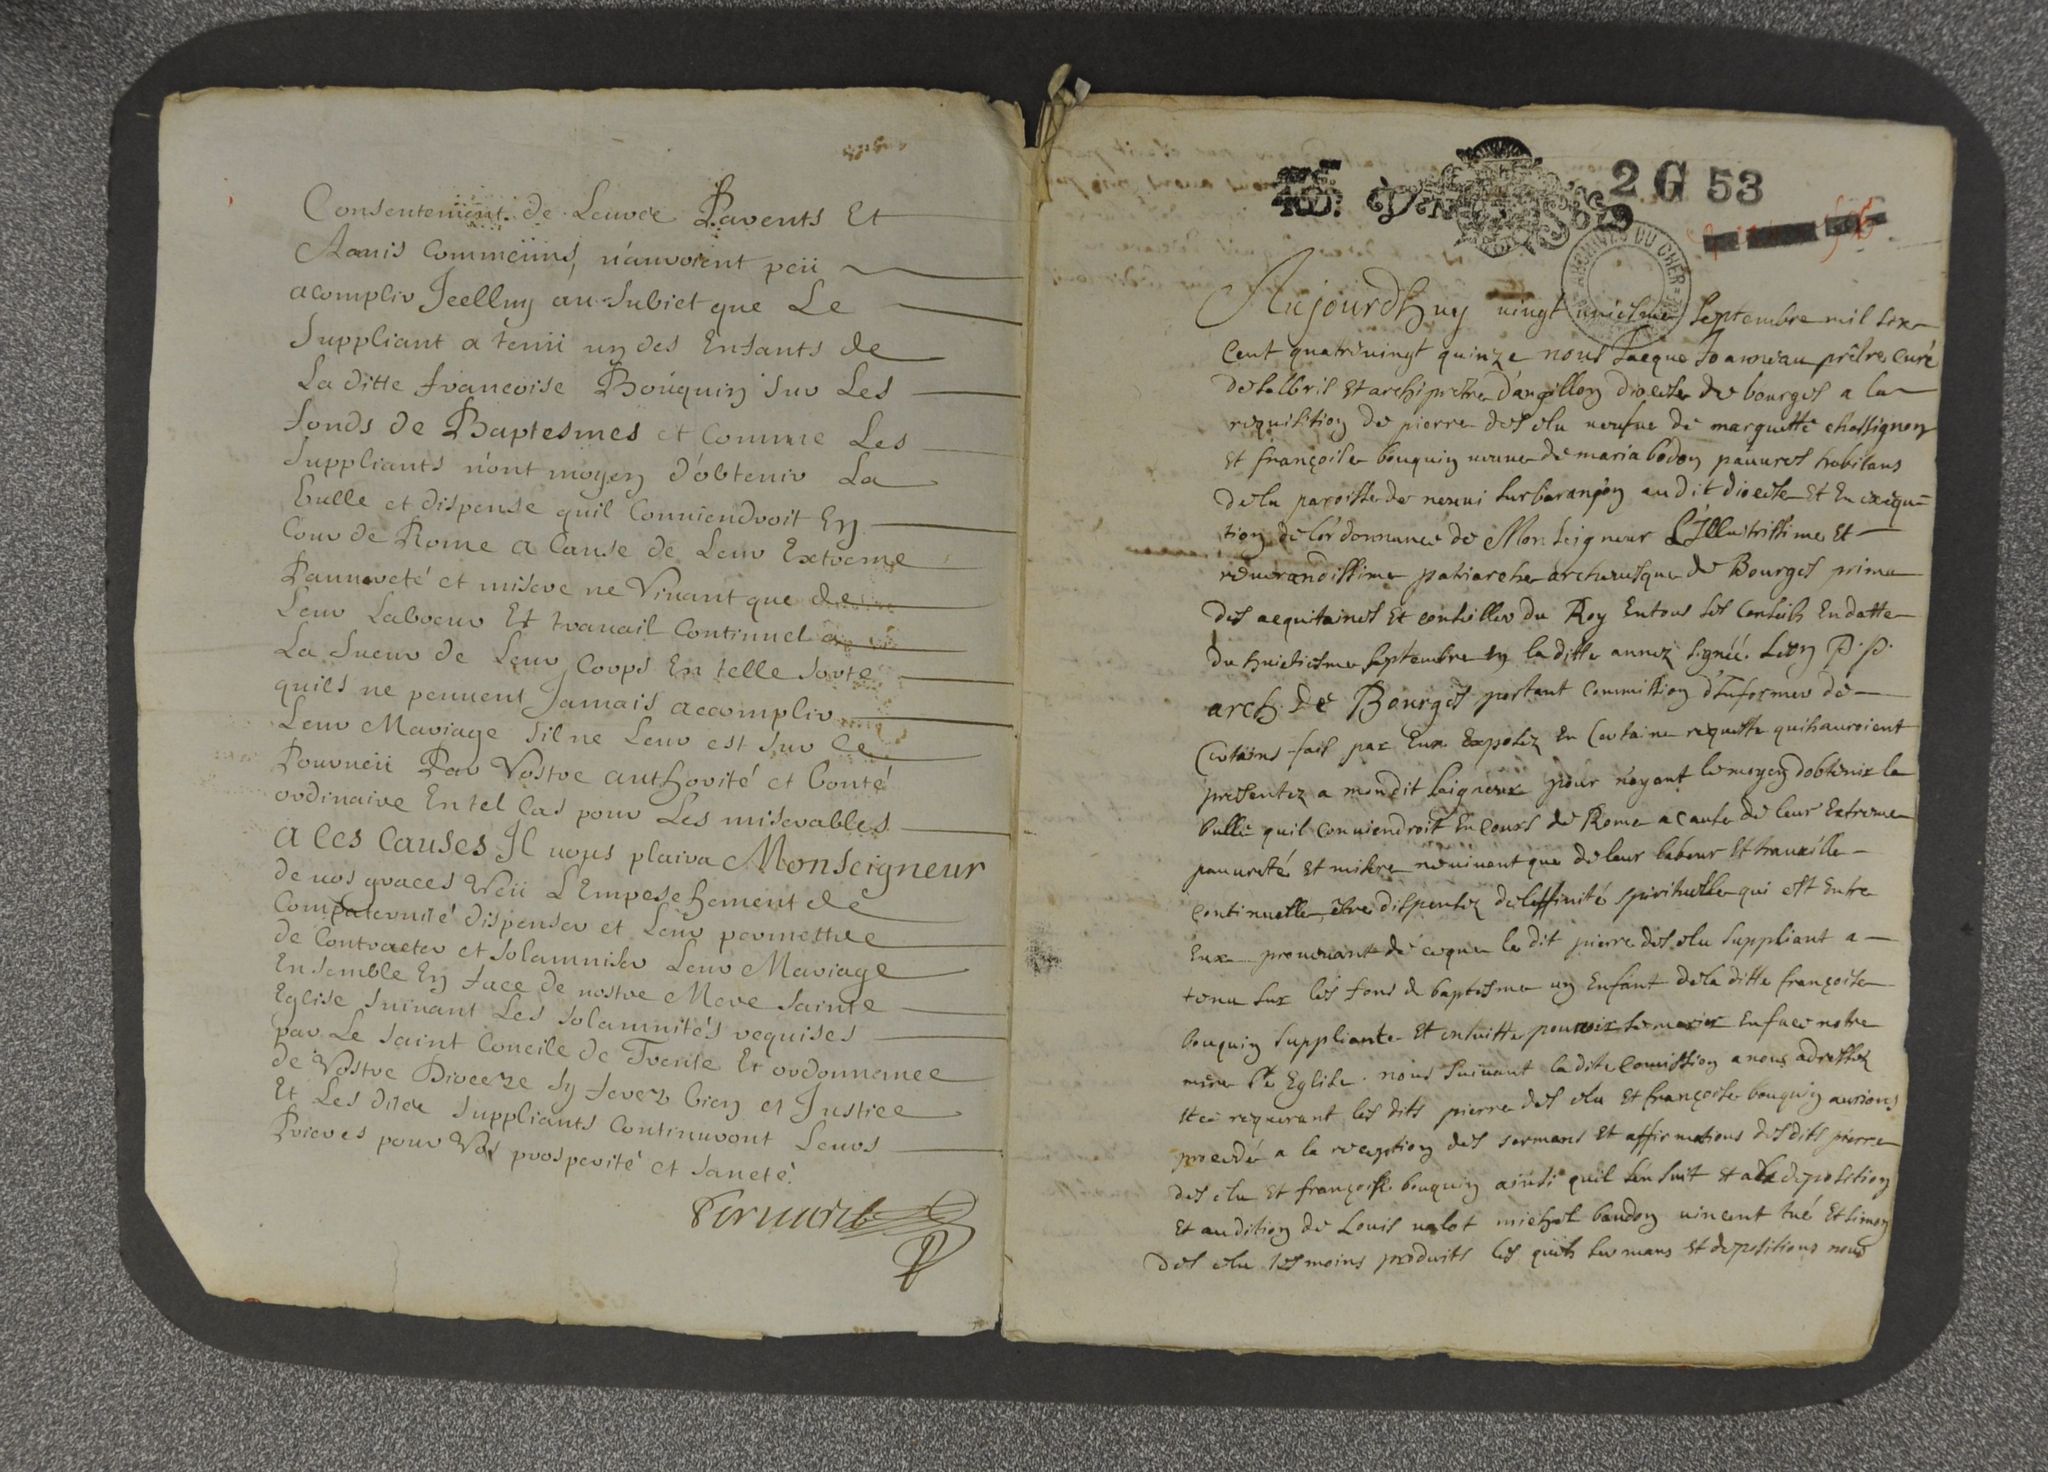 Consentement de Leurs Parents Et
Amis commeuns, n'auroient peü
acomplir Icelluy au Subiet que Le
Suppliant a tenü un des Enfants de
La ditte francoise Boüquin sur Les
fonds de Baptesmes et Comme Les
Suppliants n'ont moyen d'obtenir La
bulle et dispense quil Conuiendroit En
Cour de Rome a Cause de Leur Extreme
Pauureté et misere ne Viuant que de
Leur Laboeur Et trauail Continuel a
La Sueur de Leur Corps En telle sorte
quils ne peuuent Jamais accomplir
Leur Mariage sil ne Leur est sur Ce
Pourueü Par Vostre authorité et bonté
ordinaire En tel Cas pour Les miserables
A Ces Causes Il vous plaira Monseigneur
de vos graces Veü L'Empeschement de
Compaternité dispenser et Leur permettre
de Contracter et solamniser Leur Mariage
Ensemble En face de nostre Mere Sainte
Eglise suiuant Les solamnités requises
par Le saint Concile de Trente Et ordonnance
de Vostre Dioceze sy ferez bien et Justice
Et Les dits suppliants Continuront Leurs
Prieres pour Vos prosperité et santé.
2 G 53
ARCHIVES DU CHER
Aujourdhuy uingt uniesme septembre mil six
Cent quatreuingt quinze nous Jacque Joanneau prêtre curé
de salbris Et archiprêtre d'argillon diocese de bourges a la
requisition de pierre des elu ueufue de marguette chassignon
Et françoise bouquin ueuue de maria bodon pauures habitans
de la paroisse de neuui sur barangon au dit diocese Et En exequ-
tion de lórdonnance de Monseigneur L'Illustrissime Et
reuerandissime patriarche archeuesque de Bourges prima
des aequitaines Et conseiller du Roy En tous ses Conseils En datte
du huictiesme septembre en la ditte année signée. Leon P. P.
arch. De Bourges portant commission d'Informer de
Certains fais par Eux Exposez En Certaine requeste quils auroient
presentez a mondit seigneur pour n'ayant le moyen dobtenir la
bulle quil conuiendroit En Cours de Rome a cause de leur Extreme
pauureté Et misere ne uiuent que de leur labeur Et trauaille
continuelle être dispensez de laffinité spirituelle qui est Entre
Eux prouenante de ce que le dit pierre des elu suppliant a
tenu sur les fons de baptesme un Enfant de la ditte françoise
bouquin suppliante Et ensuitte pouuoir se marier En face notre
mere Ste Eglise. nous suiuant la dite Comission a nous adressée
Et ce requerant les dits pierre des elu Et françoise bouquin aurions
procedé a la reception des sermans Et affirmations des dits pierre
des elu Et françoise bouquin ainsi quil s'en suit Et a la deposition
Et audition de Louis ualot michel baudon uincent tué Et simon
des elu tesmoins produits les quels sermans Et depositions nous